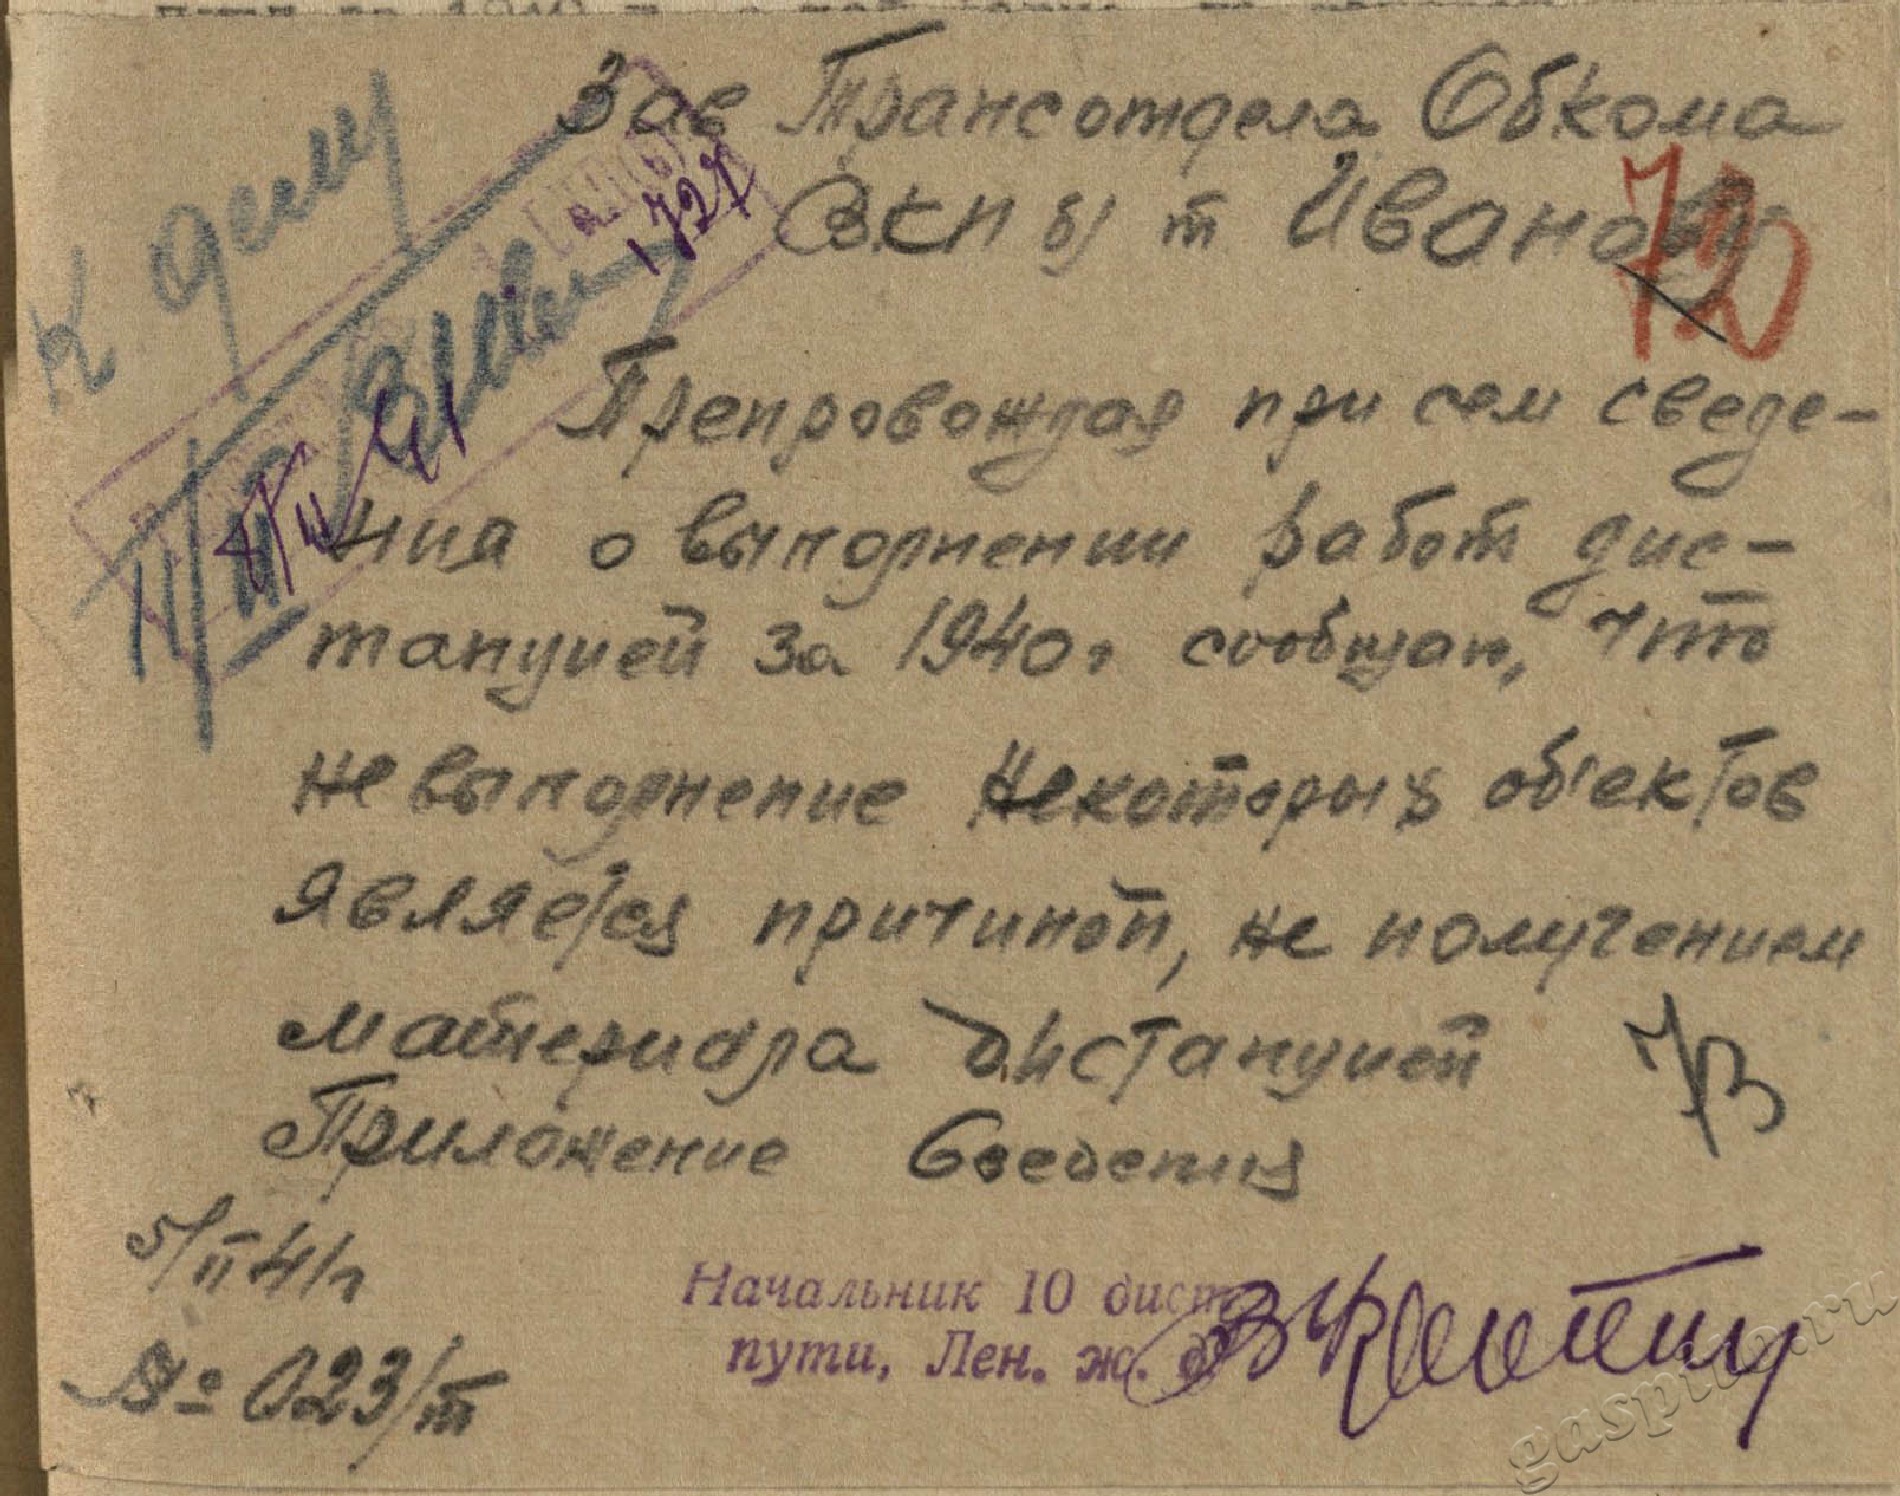 Зав Трансотдела Обкома
ВКП б) т Иванову
72
К делу
1727
8/II 41
Препровождая при сем сведе-
ния о выполнении работ дис-
танцией за 1940г сообщаю, что
не выполнение некоторых обьектов
является причиной, не получением
материала дистанцией
73
Приложение Сведения
5/II 41г
№ 023/т
Начальник 10 дист
пути, Лен. ж. д.
gaspito.ru